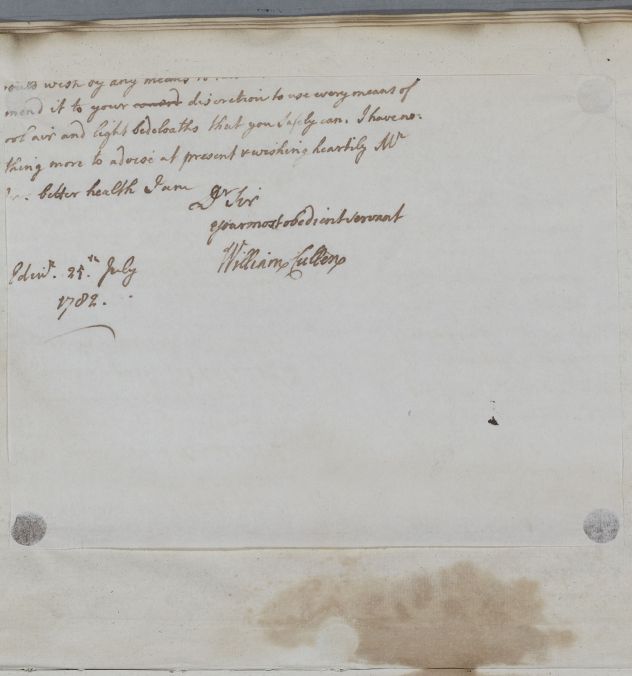 wish by any means to
mend it to your consend discretion to use every means of
cool air and light bedcloaths that you safely can. I have no:
thing more to advise at present & wishing heartily Mr
better health I am
Dr Sir
your most obedient servant
William Cullen
Edinr. 25.th July
1782.